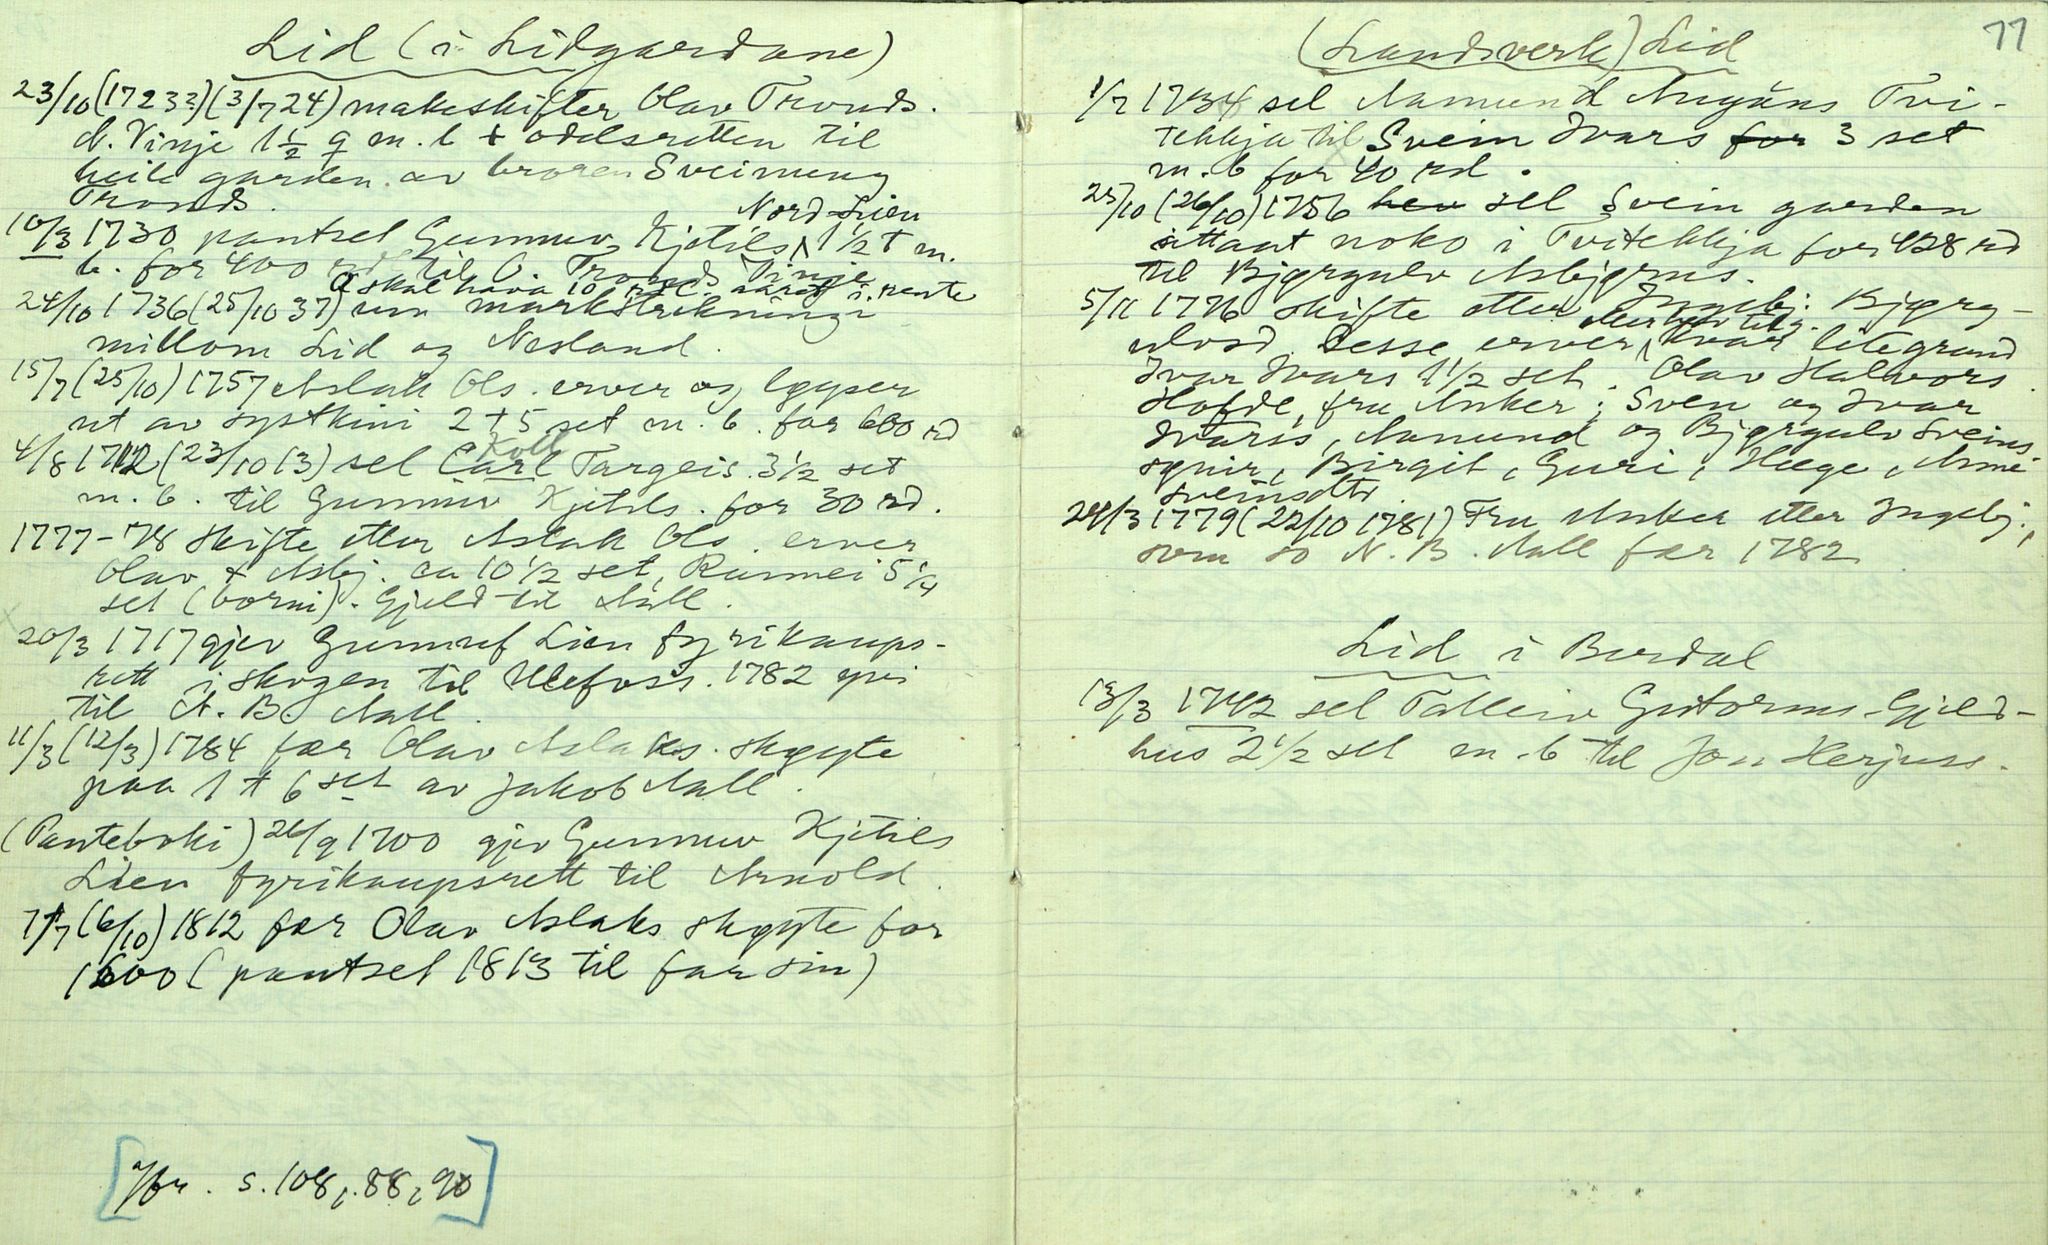 Lid (i Lidgardane)
23/10 (1723?) (3/7 24) makeskifter Olav Tronds.
N. Vinje 1 1/2 q m. b + odelsretten til
heile garden av broren Sveinung
Tronds.
10/3 1730 pantsel Gunnuv Kjetils Nord-Lien 1 1/2 t m.
b. for 400 rd til O. Tronds Vinje
O skal hava 10 rd. aaret i rente
24/10 1736 (25/10 37) um markstrekningi
millom Lid og Nesland.
15/7 (25/10) 1757 Aslak Ols. erver og løyser
ut av systkini 2 t 5 set m. b. for 600 rd
4/8 1712 (23/10 13) sel Carl Koll Targeis. 3 1/2 set
m. b. til Gunnuv Kjetils. for 30 rd.
1777-78 skifte etter Aslak Ols. erver
Olav + Asbj. ca 10 1/2 set, Runnei 5 1/4
set (borni). Gjeld til Aall.
20/3 1717 gjev Gunnuf Lien fyrikaups-
rett i skogen til Ulefoss. 1782
til N. B. Aall.
11/3 (12/3) 1784 fær Olav Aslaks. skøyte
paa 1 t 6 set av Jakob Aall.
(Panteboki) 26/9 1700 gjev Gunnuv Kjetils
Lien fyrikaupsrett til Arnold.
7/7 (6/10) 1812 fær Olav Aslaks skøyte for
1600 (pantsel 1813 til far sin)
[Jfr. s. 108, 88, 90]
77
(Landsverk) Lid
1/7 1734 sel Aamund Tvi-
tekkja til Svein Ivars for 3 set
m. b for 40 rd.
25/10 (26/10) 1756 hev sel Svein garden
attant noko i Tvitekkja for 428 rd
til Bjørgulv Asbjørns.
5/11 1776 skifte etter Ingebj. Bjørg-
ulvsd. Desse erver, kvar litegrand
Ivar Ivars 1 1/2 set. Olav Halvors.
Hofde, fru Anker; Sven og Ivar
Ivars, Aamund og Bjørgulv Sveins
synir, Birgit, Guri, Hæge, Anne
Sveinsdtr.
24/3 1779 (22/10 1781) Fru Anker etter Ingebj.,
som so N. B. Aall fær 1782
Lid i Bordal
13/3 1742 sel Talleiv Gutorms. Gjeld-
hus 2 1/2 set m. b til Jon Herjuss.